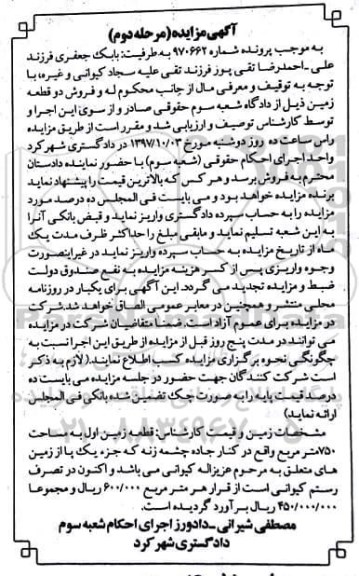 آگهی مزایده (مرحله دوم)
به موجب پرونده شماره ۹۷۰۶۶۲ به طرفیت: بابک جعفری فرزند
علی - احمدرضا تقی پور فرزند تقی علیه سجاد کیوانی و غیره، با
توجه به توقیف و معرفی مال از جانب محکوم له و فروش دو قطعه
زمین ذیل از دادگاه شعبه سوم حقوقی صادر و از سوی این اجرا و
توسط کارشناس توصیف و ارزیابی شد و مقرر است از طریق مزایده
راس ساعت ده روز دوشنبه مورخ ۱۳۹۷/۱۰/۰۳ در دادگستری شهرکرد
واحد اجرای احکام حقوقی (شعبه سوم) با حضور نماینده دادستان
محترم به فروش برسد و هر کس که بالاترین قیمت را پیشنهاد نماید
برنده مزایده خواهد بود و می بایست فی المجلس ده درصد مورد
مزایده را به حساب سپرده دادگستری واریز نماید و قبض بانکی آنرا
به این شعبه تسلیم نماید و مابقی مبلغ را حداکثر ظرف مدت یک
ماه از تاریخ مزایده به حساب سپرده واریز نماید در غیر اینصورت
وجوه واریزی پس از کسر هزینه مزایده به نفع صندوق دولت
ضبط و مزایده تجدید می گردد. این آگهی برای یکبار در روزنامه
محلی منتشر و همچنین در معابر عمومی الصاق خواهد شد. شرکت
در مزایده برای عموم آزاد است. ضمنا متقاضیان شرکت در مزایده
می توانند در مدت پنج روز قبل از مزایده از طریق این اجرا نسبت به
چگونگی نحوه برگزاری مزایده کسب اطلاع نمایند. (لازم به ذکر
است شرکت کنندگان جهت حضور در جلسه مزایده می بایست ده
درصد قیمت پایه را به صورت چک تضمین شده بانکی فی المجلس
ارائه نماید)
مشخصات زمین و قیمت کارشناس: قطعه زمین اول به مساحت
۷۵۰ متر مربع واقع در کنار جاده چشمه زنه که جزء یک پا از زمین
های متعلق به مرحوم عزیزاله کیوانی می باشد و اکنون در تصرف
رستم کیوانی است از قرار هر متر مربع ۶۰۰/۰۰۰ ریال و مجموعا
۴۵۰/۰۰۰/۰۰۰ ریال برآورد گردیده است.
مصطفی شیرانی - دادورز اجرای احکام شعبه سوم
دادگستری شهرکرد